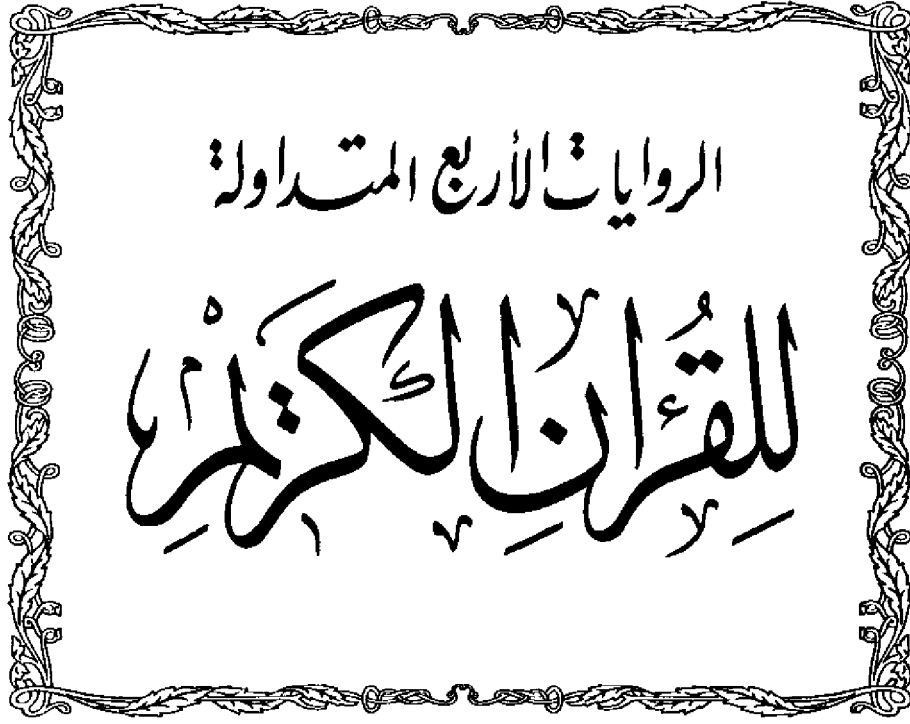 الروايات الأربع المتداولة
لِلقُرءانِ الكَريمِ